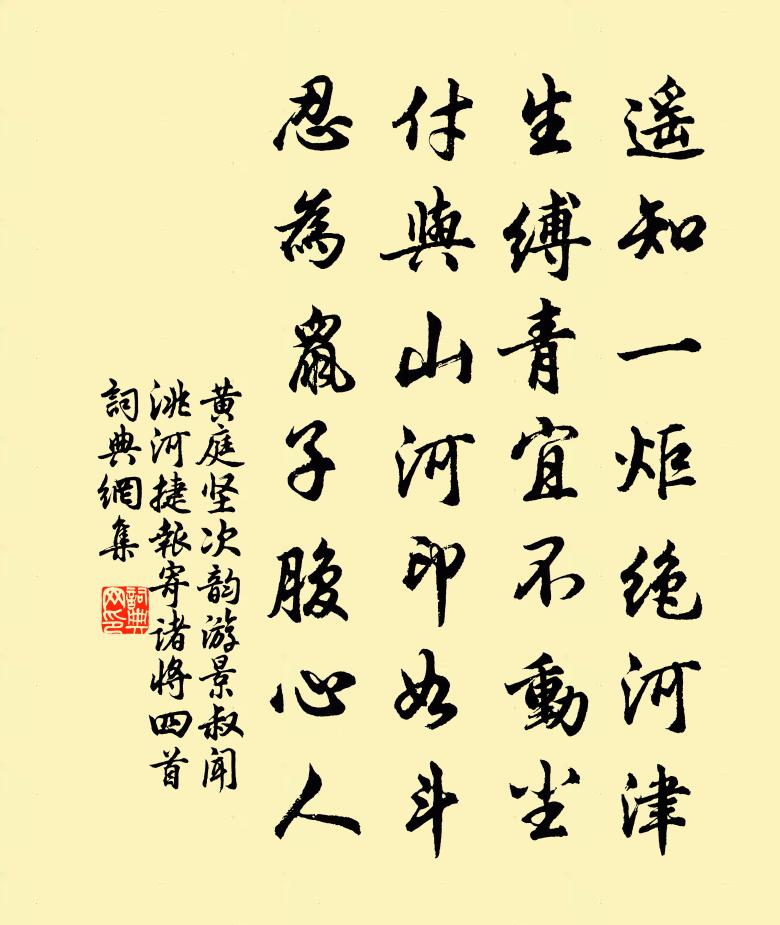 遥知一炬絶河津
生縛青宜不動尘
付與山河印如斗
忍為鼠子腹心人
黄庭坚次韵游景叔闻
洮河捷報寄诸将四首
詞典網集
詞典网印